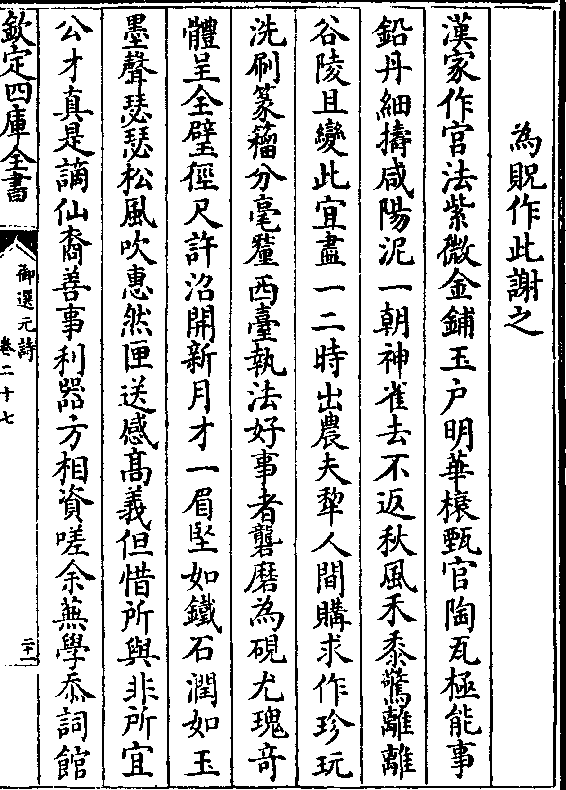 為貺作此謝之
漢家作官法紫微金鋪玉户明華榱甄官陶瓦極能事
鉛丹細擣咸陽泥一朝神雀去不返秋風禾黍驚離離
谷陵且變此宜盡一二時出農夫犂人間購求作珍玩
洗刷篆籀分毫釐西臺執法好事者礱磨為硯尤瑰奇
體呈全璧徑尺許沼開新月才一眉堅如鐵石潤如玉
墨聲瑟瑟松風吹惠然匣送感高義但惜所與非所宜
公才真是謫仙裔善事利器方相資嗟余蕪學忝詞館
欽定四庫全書
御選元詩
卷二十七
二十一